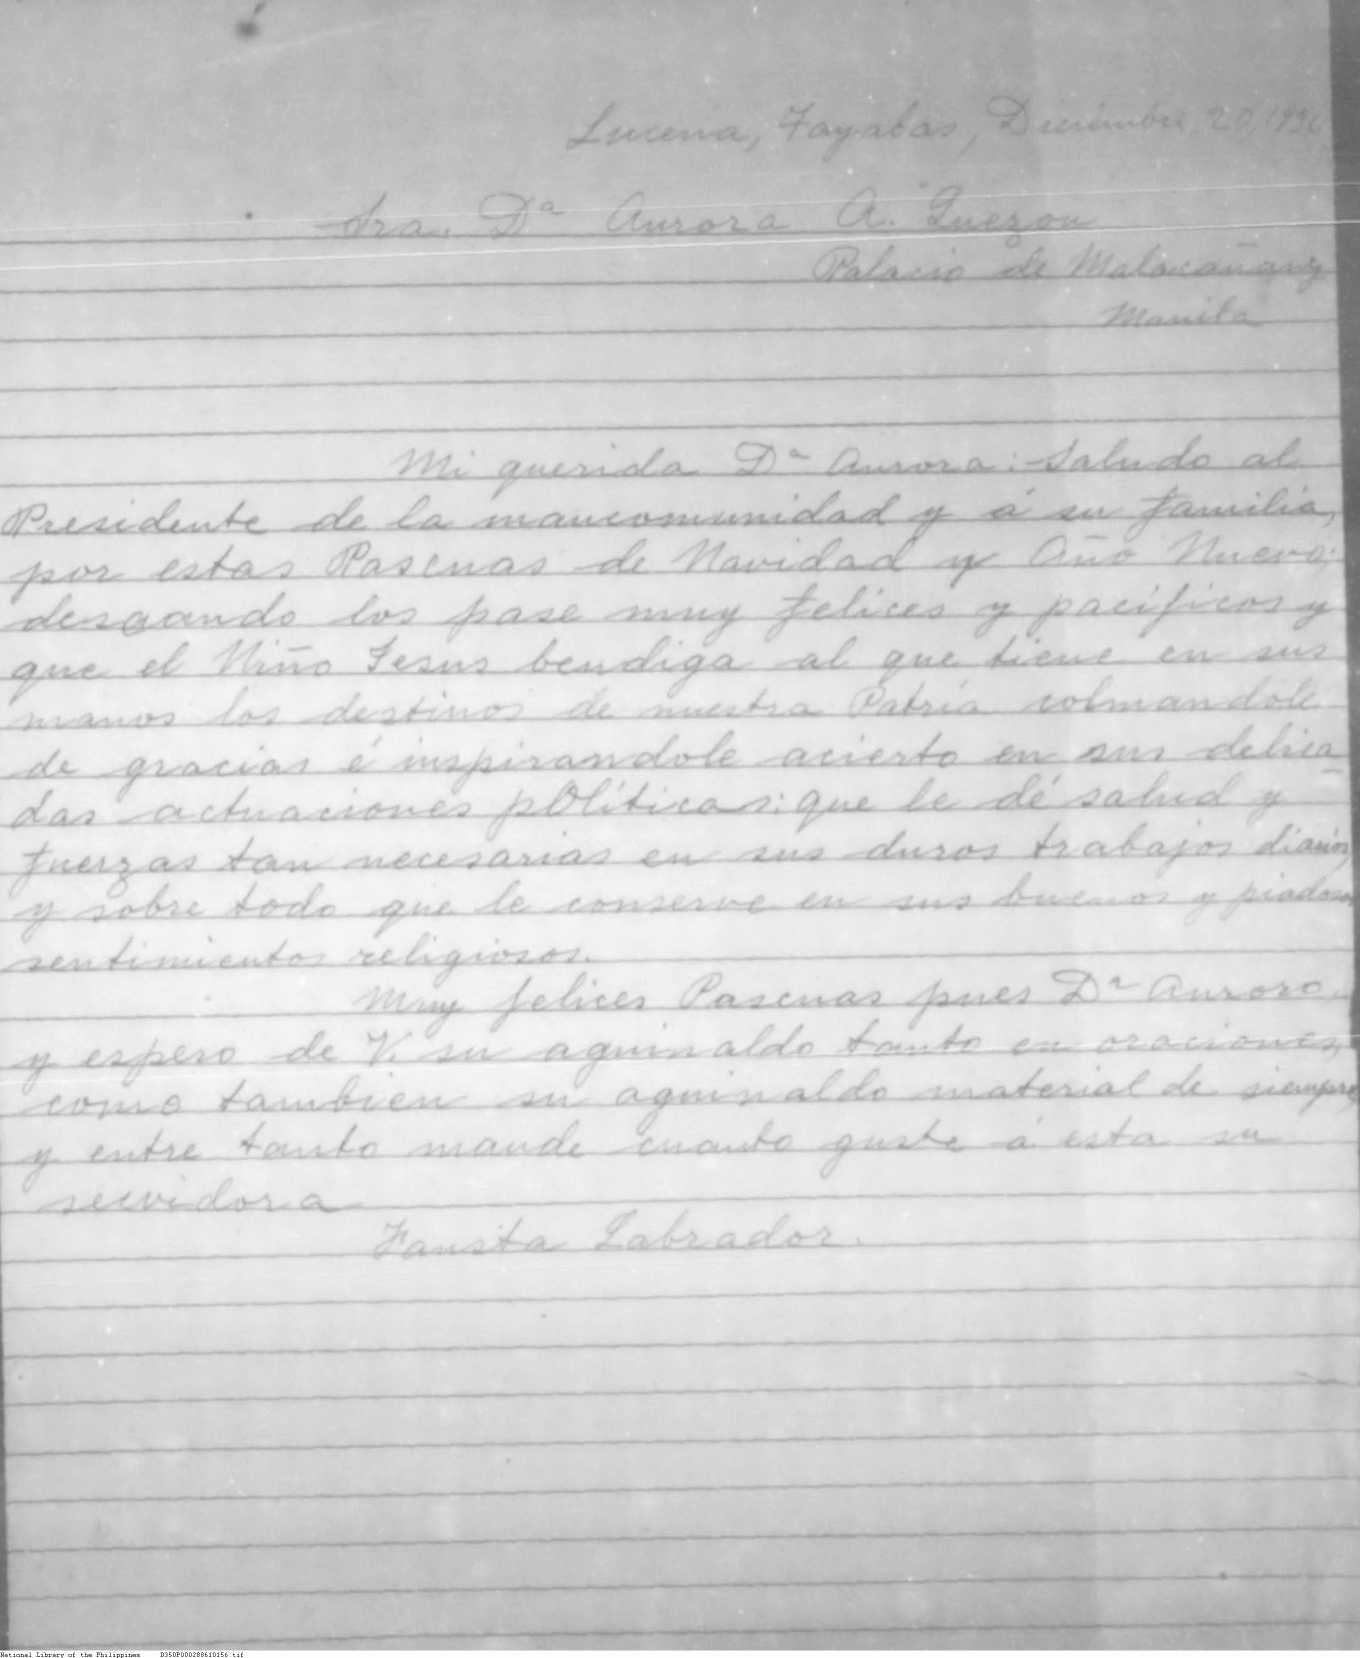 Lucena, Tayabas, Diciembre, 20, 1936
Sra. Dª Aurora A. Quezon
Palacio de Malacañang
Manila
Mi querida Dª Aurora: Saludo al
Presidente de la mancomunidad y á su familia,
por estas Pascuas de Navidad y Año Nuevo;
deseando los pase muy felices y pacificos y
que el Niño Jesus bendiga al que tiene en sus
manos los destinos de nuestra Patria colmandole
de gracias é inspirandole acierto en sus delica
das actuaciones políticas: que le dé salud y
fuerzas tan necesarias en sus duros trabajos diarios,
y sobre todo que le conserve en sus buenos y piadosos
sentimientos religiosos.
Muy felices Pascuas pues Dª Aurora
y espero de V. su aguinaldo tanto en oraciones,
como tambien su aguinaldo material de siempre,
y entre tanto mande cuanto guste á esta su
servidora
Fausta Labrador.
National Library of the Philippines D350P000288610156.tif